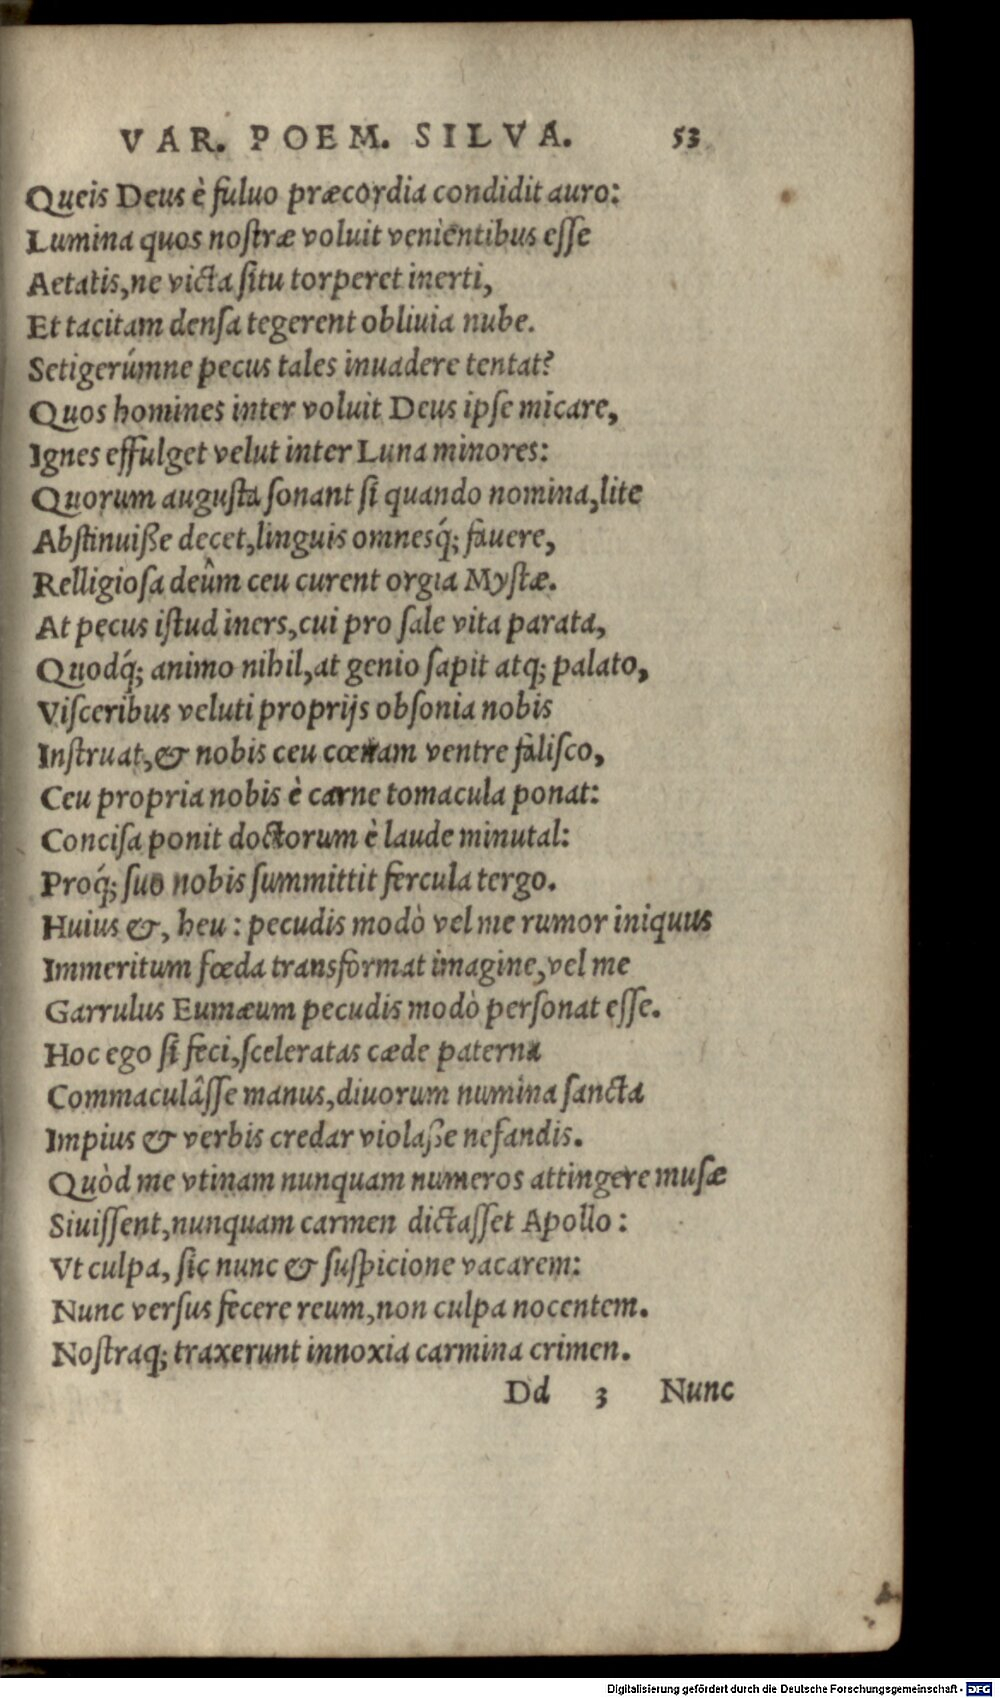 VAR. POEM. SILVA. 53
Queis Deus è fuluo præcordia condidit auro:
Lumina quos nostræ voluit venientibus esse
Aetatis, ne victa situ torperet inerti,
Et tacitam densa tegerent obliuia nube.
Setigerúmne pecus tales inuadere tentat?
Quos homines inter voluit Deus ipse micare,
Ignes effulget velut inter Luna minores:
Quorum augusta sonant si quando nomina, lite
Abstinuiße decet, linguis omnesq́; fauere,
Relligiosa deûm ceu curent orgia Mystæ.
At pecus istud iners, cui pro sale vita parata,
Quodq́; animo nihil, at genio sapit atq; palato,
Visceribus veluti proprijs obsonia nobis
Instruat, & nobis ceu cœnam ventre falisco,
Ceu propria nobis è carne tomacula ponat:
Concisa ponit doctorum è laude minutal:
Proq́; suo nobis summittit fercula tergo.
Huius &, heu : pecudis modò vel me rumor iniquus
Immeritum fœda transformat imagine, vel me
Garrulus Eumæum pecudis modò personat esse.
Hoc ego si feci, sceleratas cæde paterna
Commaculâsse manus, diuorum numina sancta
Impius & verbis credar violaße nefandis.
Quòd me vtinam nunquam numeros attingere musæ
Siuissent, nunquam carmen dictasset Apollo :
Vt culpa, sic nunc & suspicione vacarem:
Nunc versus fecere reum, non culpa nocentem.
Nostraq; traxerunt innoxia carmina crimen.
Dd 3 Nunc
Digitalisierung gefördert durch die Deutsche Forschungsgemeinschaft - DFG